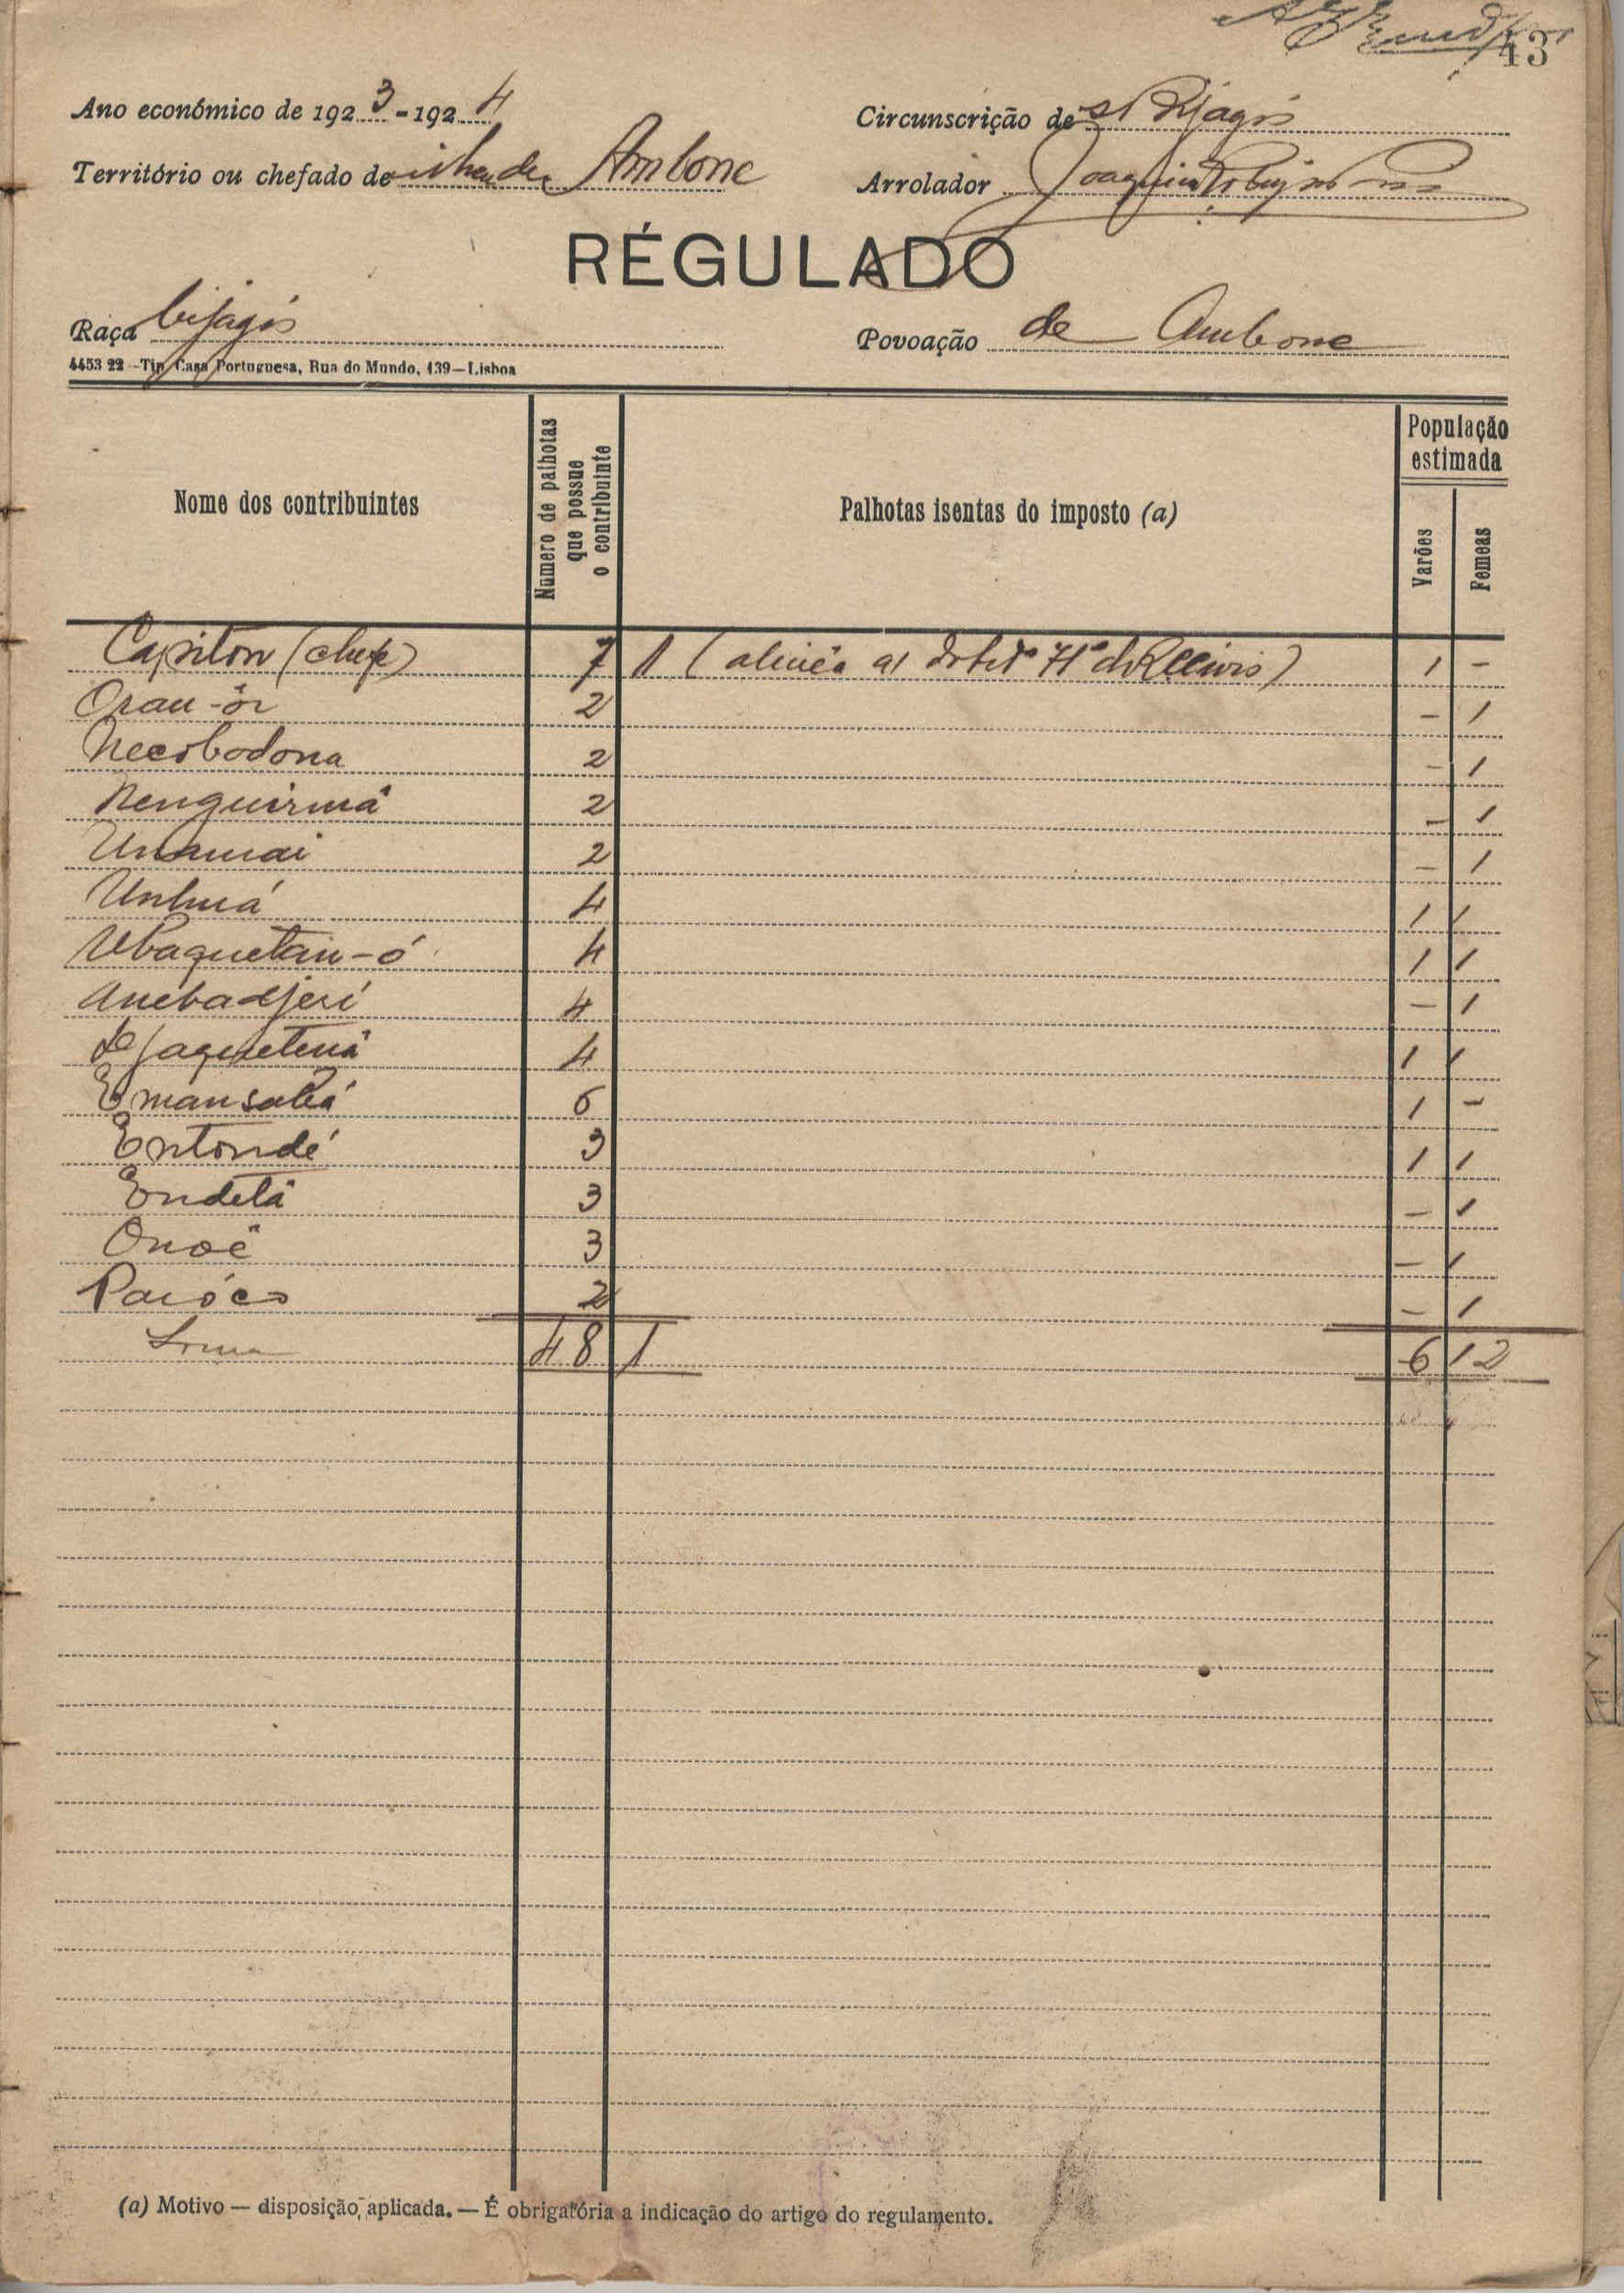 43
Ano económico de 1923-1924
Circunscrição de Bijagós
Território ou chefado de Ambone
Arrolador Joaquim
RÉGULADO
Raça bijagós
Povoação de Ambone
4453 22 -Tip. Casa Portuguesa, Rua do Mundo, 139-Lisboa
Nome dos contribuintes
Número de palhotas que possue o contribuinte
Palhotas isentas do imposto (a)
População estimada
Varões
Femeas
Capiton (chefe) 7 1 (alinéa a) 71º 1 -
Orau-ôr 2 - 1
Necobodona 2 - 1
Nenguirmá 2 - 1
Unamai 2 - 1
Unhuá 4 1 1
Ubaquetain-ó 4 1 1
Anebadjeri 4 - 1
4 1 1
Emansabá 6 1 -
Entondé 3 1 1
Endetá 3 - 1
Onoê 3 - 1
Paióco 2 - 1
Soma 48 1 6 12
(a) Motivo — disposição, aplicada. — É obrigatória a indicação do artigo do regulamento.